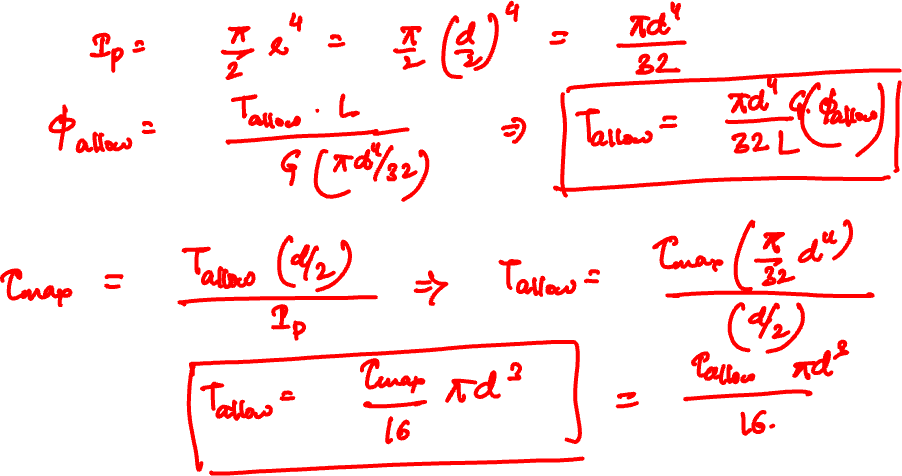 I_p = π/2 r^4 = π/2 (d/2)^4 = πd^4/32
ϕ_allow = T_allow · L / G(πd^4/32) ⇒ T_allow = πd^4 G(ϕ_allow) / 32 L
τ_max = T_allow (d/2) / I_p ⇒ T_allow = τ_max (π/32 d^4) / (d/2)
T_allow = τ_max/16 πd^3 = τ_allow πd^3 / 16.